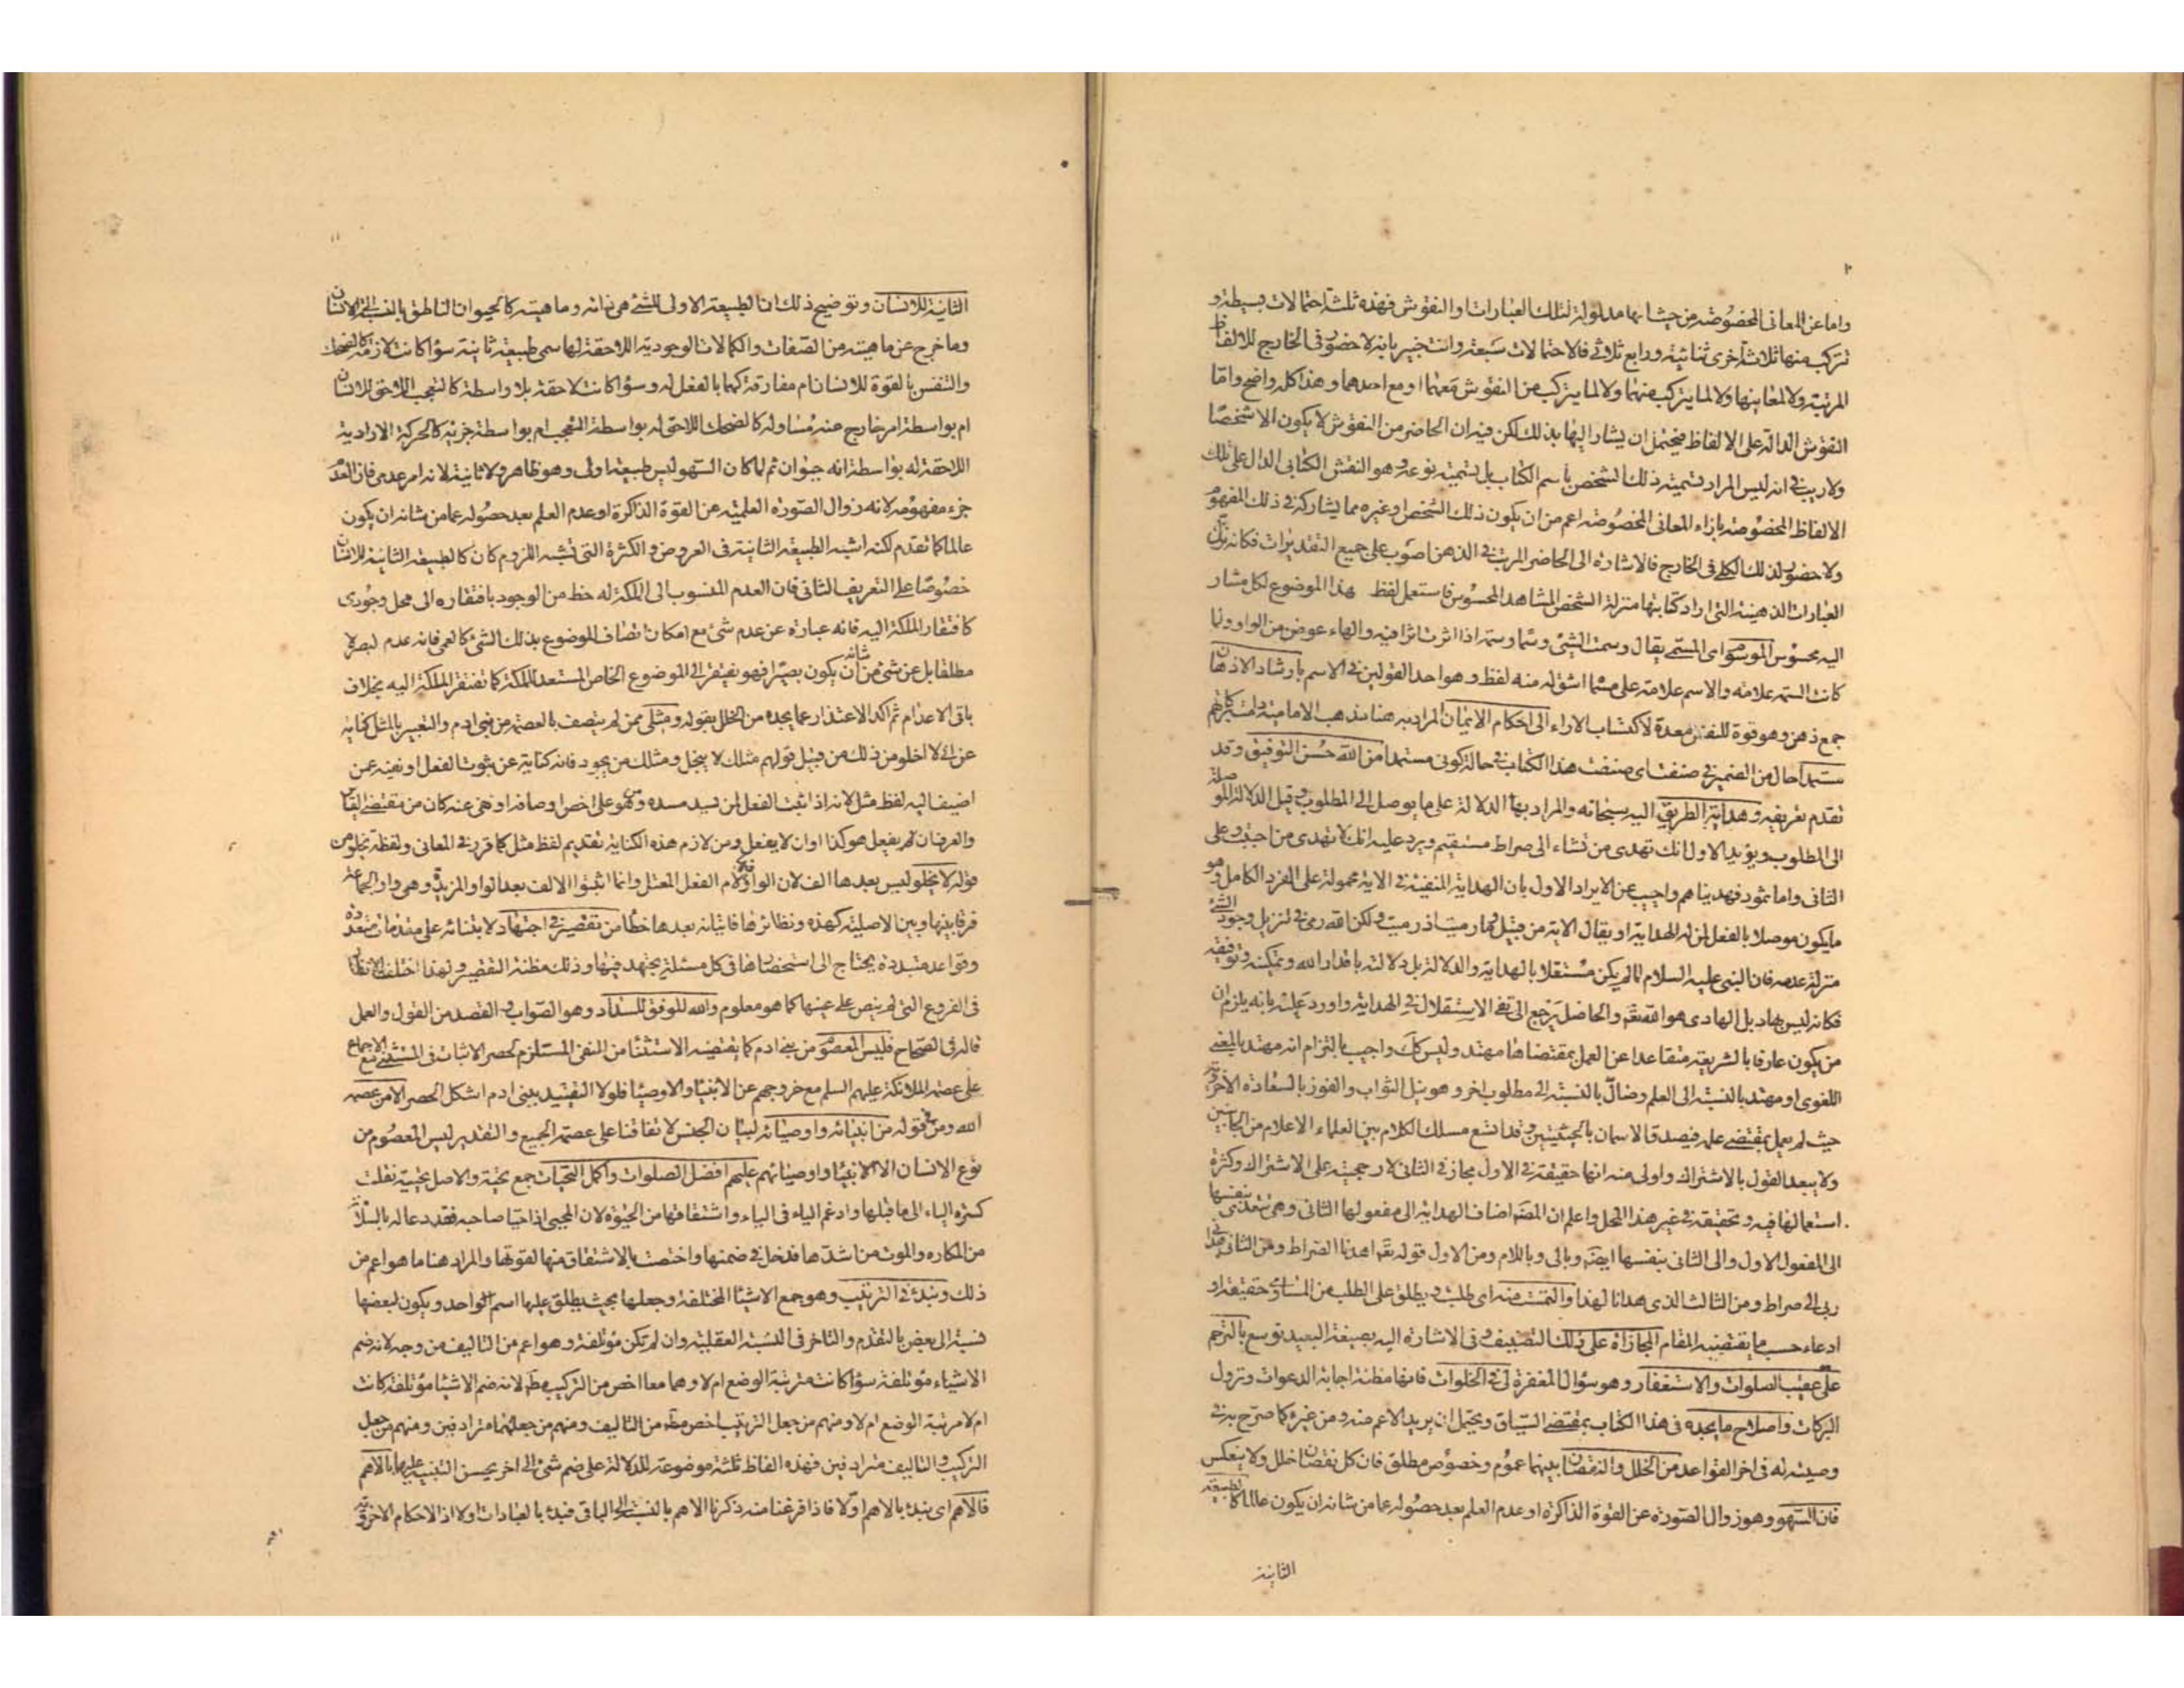 ١٠
واما عن المعانى المخصوصة من حيث انها مدلولة لتلك العبارات والنقوش فهذه ثلثة احتمالات بسيطة و
تتركب منها ثلاث أخرى ثنائية ورابع ثلاثى فالاحتمالات سبعة وانت خبير بانه لا حضور فى الخارج للالفاظ
المرتبة ولا لمعانيها ولا لما يتركب منهما ولا لما يتركب من النقوش معهما او مع احدهما وهذا كله واضح واما
النقوش الدالة على الالفاظ فيحتمل ان يشار اليها بذلك لكن فيه ان الحاضر من النقوش لا يكون الا شخصا
ولا ريب فى انه ليس المراد تسمية ذلك الشخص باسم الكتاب بل تسمية نوعه وهو النقش الكتابى الدال على تلك
الالفاظ المخصوصة بازاء المعانى المخصوصة اعم من ان يكون ذلك الشخص او غيره مما يشاركه فى ذلك المفهوم
ولا حضور لذلك الكلى فى الخارج فالاشارة الى الحاضر المرتب فى الذهن اصوب على جميع التقديرات فكانه نزل
العبارات الذهنية التى اراد كتابتها منزلة الشخص المشاهد المحسوس فاستعمل لفظ هذا الموضوع لكل مشار
اليه محسوس الموسوم اى المسمى يقال وسمت الشىء وسما وسمة اذا اثرت اثرا فيه والهاء عوض من الواو ولما
كانت السمة علامة والاسم علامة على مسماه اشق له منه لفظ وهو احد القولين فى الاسم بارشاد الاذهان
جمع ذهن وهو قوة للنفس معدة لاكتساب الاراء الى احكام الايمان المراد به هنا مذهب الامامية
مستمدا حال من الضمير فى صنفت اى صنفت هذا الكتاب فى حالة كونى مستمدا من الله حسن التوفيق وقد
تقدم تعريفه وهداية الطريق اليه سبحانه والمراد بها الدلالة على ما يوصل الى المطلوب وقيل الدلالة الموصلة
الى المطلوب ويؤيد الاول انك تهدى من تشاء الى صراط مستقيم ويرد عليه انك لا تهدى من احببت وعلى
الثانى واما ثمود فهديناهم واجيب عن الايراد الاول بان الهداية المنفية فى الاية محمولة على الفرد الكامل وهو
ما يكون موصلا بالفعل لمن له الهداية او يقال الاية من قبيل وما رميت اذ رميت ولكن الله رمى فى تنزيل وجود الشئ
منزلة عدمه فان النبى عليه السلام لما لم يكن مستقلا بالهداية والدلالة بل دلالته باقدار الله وتمكينه وتوفيقه
فكانه ليس بهاد بل الهادى هو الله تعم والحاصل يرجع الى نفى الاستقلال فى الهداية واورد عليه بانه يلزم ان
من يكون عارفا بالشريعة متقاعدا عن العمل بمقتضاها مهتد وليس كك واجيب بالتزام انه مهتد بالمعنى
اللغوى او مهتد بالنسبة الى العلم وضال بالنسبة الى مطلوب اخر وهو نيل الثواب والفوز بالسعادة الاخروية
حيث لم يعمل بمقتضى علمه فيصدق الاسمان بالحيثيتين وقد اتسع مسلك الكلام بين العلماء الاعلام من الجانبين
ولا يبعد القول بالاشتراك واولى منه انها حقيقة فى الاول مجاز فى الثانى لارجحيته على الاشتراك وكثرة
استعمالها فيه وتحقيقه فى غير هذا المحل واعلم ان المصَ اضاف الهداية الى مفعولها الثانى وهى تتعدى بنفسها
الى المفعول الاول والى الثانى بنفسها ايضَ وبالى وباللام ومن الاول قوله تعَ اهدنا الصراط ومن الثانى هدانى
ربى الى صراط ومن الثالث الذى هدانا لهذا والتمست منه اى طلبت ويطلق على الطلب من المساوى حقيقة او
ادعاء حسب ما يقتضيه المقام المجازاة على ذلك التصنيف وفى الاشارة اليه بصيغة البعيد توسع بالترحم
على عقيب الصلوات والاستغفار وهو سؤال المغفرة لى فى الخلوات فانها مظنة اجابة الدعوات ونزول
البركات واصلاح ما يجده فى هذا الكتاب بمقتضى السياق ويحتمل ان يريد الاعم منه ومن غيره كما صرح به فى
وصيته له فى اخر القواعد من الخلل والنقصان بينهما عموم وخصوص مطلق فان كل نقصان خلل ولا ينعكس
فان السهو وهو زوال الصورة عن القوة الذاكرة او عدم العلم بعد حصوله عما من شانه ان يكون عالما كالطبيعة
الثانية
١١
الثانية للانسان وتوضيح ذلك ان الطبيعة الاولى للشئ هى ذاته وماهيته كالحيوان الناطق بالنسبة الى الانسان
وما خرج عن ماهيته من الصفات والكمالات الوجودية اللاحقة لها سمى طبيعة ثانية سواء كانت لازمة كالضحك
والتنفس بالقوة للانسان ام مفارقة كهما بالفعل له وسواء كانت لاحقة بلا واسطة كالتعجب اللاحق للانسان
ام بواسطة امر خارج عنه مساو له كالضحك اللاحق له بواسطة التعجب ام بواسطة جزئه كالحركة الارادية
اللاحقة له بواسطة انه حيوان ثم لما كان السهو ليس طبيعة اولى وهو ظاهر ولا ثانية لانه امر عدمى فان العدم
جزء مفهومه لانه زوال الصورة العلمية عن القوة الذاكرة او عدم العلم بعد حصوله عما من شانه ان يكون
عالما كما تقدم لكنه اشبه الطبيعة الثانية فى العروض والكثرة التى تشبه اللزوم كان كالطبيعة الثانية للانسان
خصوصا على التعريف الثانى فان العدم المنسوب الى الملكة له حظ من الوجود بافتقاره الى محل وجودى
كافتقار الملكة اليه فانه عبارة عن عدم شئ مع امكان اتصاف الموضوع بذلك الشئ كالعمى فانه عدم البصر لا
مطلقا بل عن شئ من شانه ان يكون بصيرا فهو يفتقر الى الموضوع الخاص المستعد للملكة كما تفتقر الملكة اليه بخلاف
باقى الاعدام ثم اكد الاعتذار عما يجده من الخلل بقوله ومثلى ممن لم يتصف بالعصمة من بنى ادم والتعبير بالمثل كناية
عن انى لا اخلو من ذلك من قبيل قولهم مثلك لا يبخل ومثلك من يجود فانه كناية عن ثبوت الفعل او نفيه عمن
اضيف اليه لفظ مثل لانه اذا اثبت الفعل لمن يسد مسده ومن هو على اخص اوصافه او نفى عنه كان من مقتضى القياس
والعرف ان لم يفعل هو كذا او ان لا يفعل ومن لازم هذه الكناية تقديم لفظ مثل كما قرر فى المعانى ولفظة يخلو من
قوله لا يخلو ليس بعدها الف لان الواو فيه لام الفعل المعتل وانما اثبتوا الالف بعد الواو المزيدة وهى واو الجماعة
فرقا بينها وبين الاصلية كهذه ونظائرها فاثباته بعدها خطأ من تقصير فى اجتهاد لابتنائه على مقدمات متعددة
وقواعد متبددة يحتاج الى استحضارها فى كل مسئلة يجتهد فيها وذلك مظنة التقصير ولهذا اختلف الانظار
فى الفروع التى لم ينص على عينها كما هو معلوم والله الموفق للسداد وهو الصواب و القصد من القول والعمل
قاله فى الصحاح فليس المعصوم من بنى ادم كما يقتضيه الاستثناء من النفى المستلزم لحصر الاثبات فى المستثنى مع الاجماع
على عصمة الملائكة عليهم السلم مع خروجهم عن الانبياء والاوصياء فلولا التقييد ببنى ادم اشكل الحصر الا من عصمه
الله ومن فى قوله من انبيائه واوصيائه لبيان الجنس لاتفاقنا على عصمة الجميع والتقدير ليس المعصوم من
نوع الانسان الا الانبياء واوصيائهم عليهم افضل الصلوات واكمل التحيات جمع تحية والاصل تحيية نقلت
كسرة الياء الى ما قبلها وادغم الياء فى الياء واشتقاقها من الحيوة لان المحيى اذا حيا صاحبه فقد دعا له بالسلامة
من المكاره والموت من اشدها فدخل فى ضمنها واختصت بالاشتقاق منها لقوتها والمراد هنا ما هو اعم من
ذلك ونبدء فى الترتيب وهو جمع الاشياء المختلفة وجعلها بحيث يطلق عليها اسم الواحد ويكون لبعضها
نسبة الى بعض بالتقدم والتاخر فى النسبة العقلية وان لم تكن مؤتلفة وهو اعم من التاليف من وجه لانه ضم
الاشياء مؤتلفة سواء كانت مترتبة الوضع ام لا وهما معا اخص من التركيب مطَ لانه ضم الاشياء مؤتلفة كانت
ام لا مرتبة الوضع ام لا ومنهم من جعل الترتيب اخص مطَ من التاليف ومنهم من جعلهما مترادفين ومنهم من جعل
التركيب والتاليف مترادفين فهذه الفاظ ثلثة موضوعة للدلالة على ضم شئ الى اخر يحسن التنبيه عليها بالاهم
فالاهم اى نبدء بالاهم اولا فاذا فرغنا منه ذكرنا الاهم بالنسبة الى الباقى فبدء بالعبادات اولا اذ الاحكام الاخروية